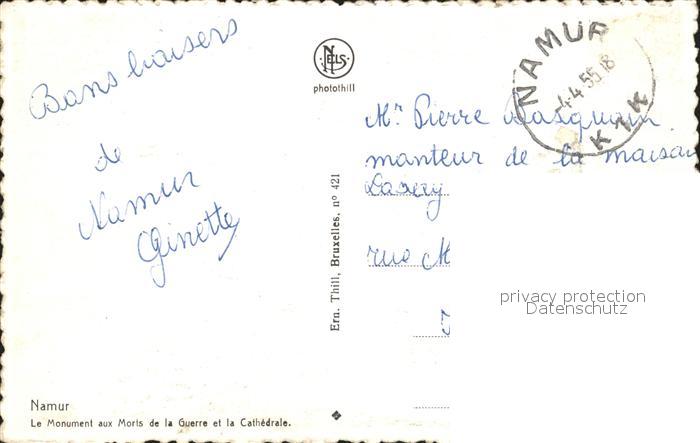 Bons baisers
de
Namur
Ginette
NELS
photothill
Ern. Thill, Bruxelles, nº 421
Namur
Le Monument aux Morts de la Guerre et la Cathédrale.
NAMUR
-4-4.55.18
K1K
Mr Pierre
manteur de la maison
rue M
privacy protection
Datenschutz